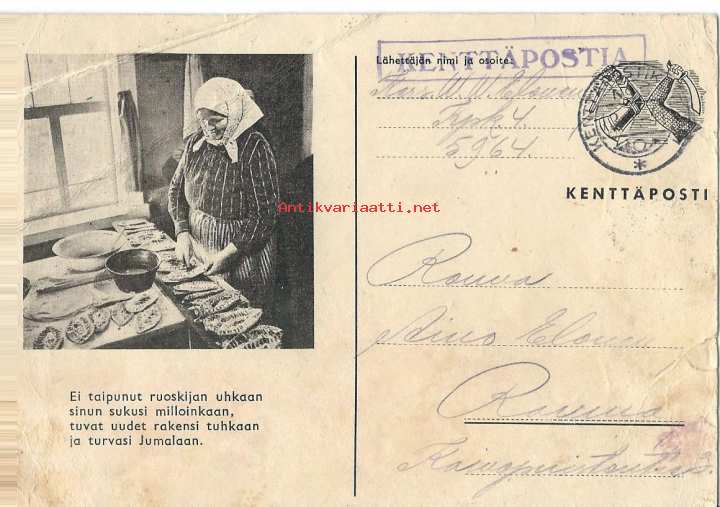 KENTTÄPOSTIA
Lähettäjän nimi ja osoite:
W. W. Elonen
Trpk 4.
5964.
KENTTÄPOSTI
Antikvariaatti.net
KENTTÄPOSTI
Rouva
Aino Elonen
Rauma
Ei taipunut ruoskijan uhkaan
sinun sukusi milloinkaan,
tuvat uudet rakensi tuhkaan
ja turvasi Jumalaan.